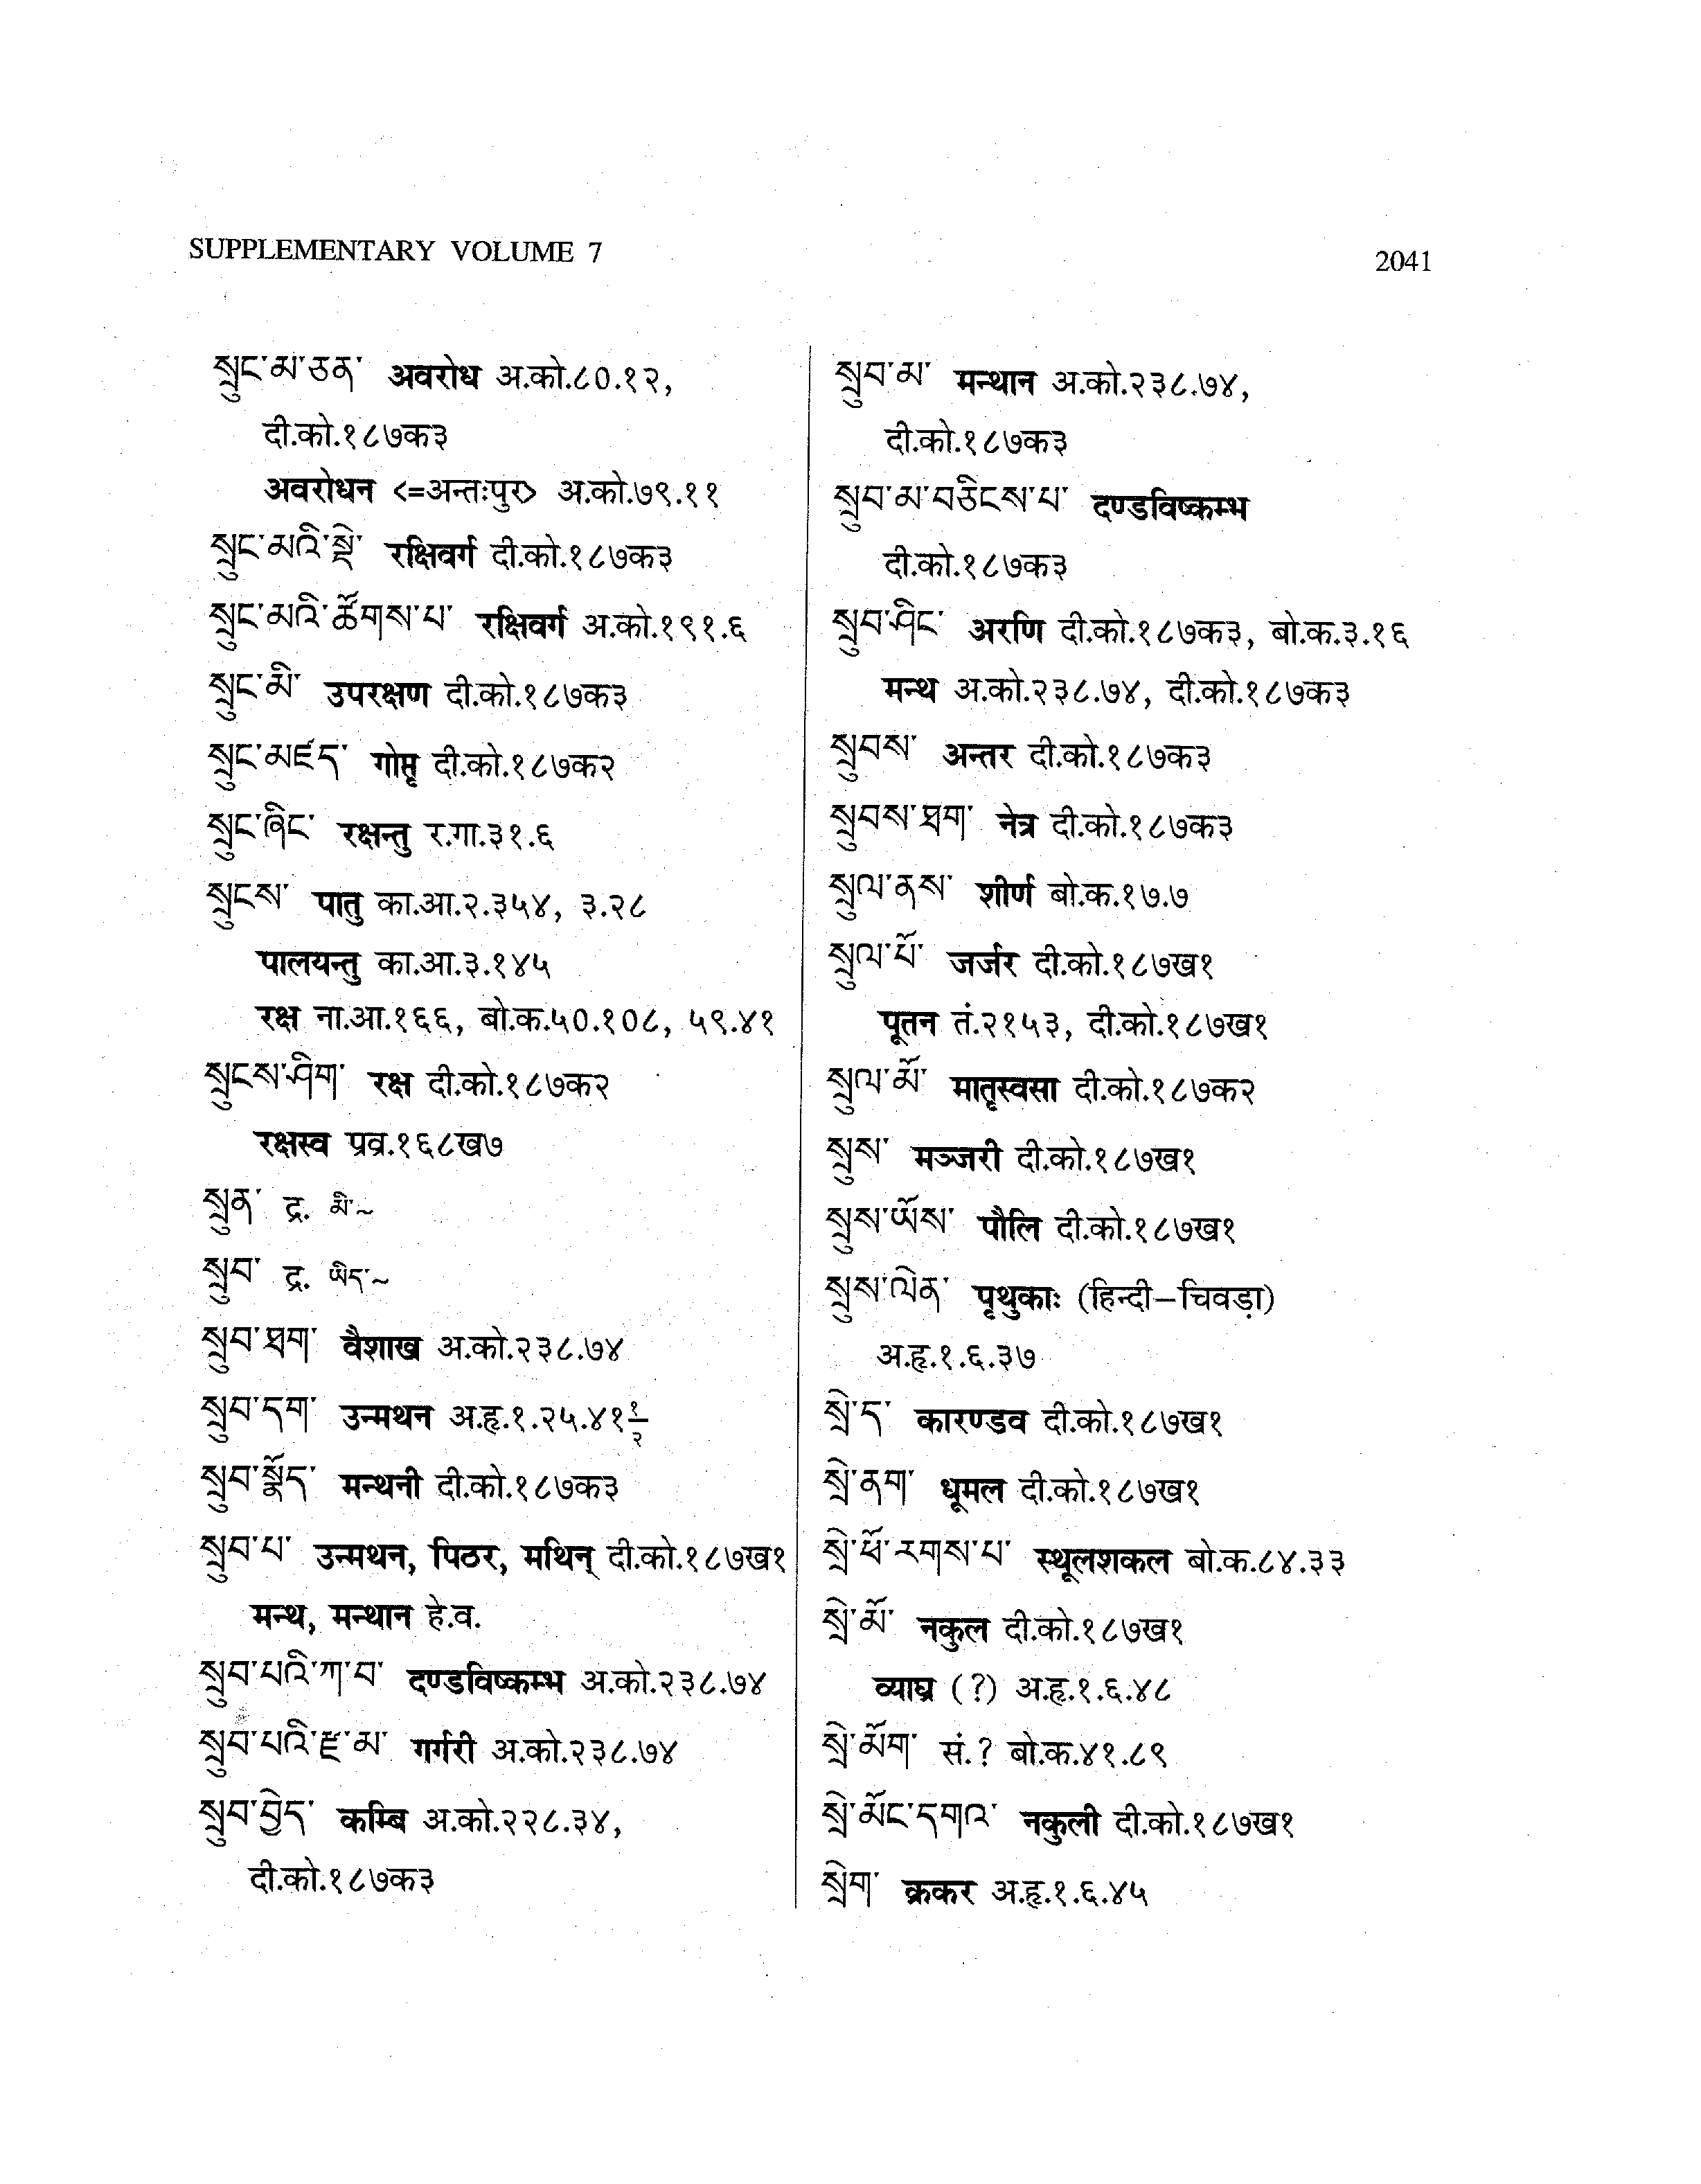 SUPPLEMENTARY VOLUME 7
2041
སྲུང་མ་ཅན་ अवरोध अ.को.८०.१२,
दी.को.१८७क३
अवरोधन <=अन्तःपुर> अ.को.७९.११
སྲུང་མའི་སྡེ་ रक्षिवर्ग दी.को.१८७क३
སྲུང་མའི་ཚོགས་པ་ रक्षिवर्ग अ.को.१९१.६
སྲུང་མི་ उपरक्षण दी.को.१८७क३
སྲུང་མཛད་ गोप्तृ दी.को.१८७क२
སྲུང་ཞིང་ रक्षन्तु र.गा.३१.६
སྲུངས་ पातु का.आ.२.३५४, ३.२८
पालयन्तु का.आ.३.१४५
रक्ष ना.आ.१६६, बो.क.५०.१०८, ५९.४१
སྲུངས་ཤིག་ रक्ष दी.को.१८७क२
रक्षस्व प्रव्र.१६८ख७
སྲུན་ द्र. མི་~
སྲུབ་ द्र. ཡིད་~
སྲུབ་ཐག་ वैशाख अ.को.२३८.७४
སྲུབ་དག་ उन्मथन अ.हृ.१.२५.४११/२
སྲུབ་སྣོད་ मन्थनी दी.को.१८७क३
སྲུབ་པ་ उन्मथन, पिठर, मथिन् दी.को.१८७ख१
मन्थ, मन्थान हे.व.
སྲུབ་པའི་ཀ་བ་ दण्डविष्कम्भ अ.को.२३८.७४
སྲུབ་པའི་རྫ་མ་ गर्गरी अ.को.२३८.७४
སྲུབ་བྱེད་ कम्बि अ.को.२२८.३४,
दी.को.१८७क३
སྲུབ་མ་ मन्थान अ.को.२३८.७४,
दी.को.१८७क३
སྲུབ་མ་བཅིངས་པ་ दण्डविष्कम्भ
दी.को.१८७क३
སྲུབ་ཤིང་ अरणि दी.को.१८७क३, बो.क.३.१६
मन्थ अ.को.२३८.७४, दी.को.१८७क३
སྲུབས་ अन्तर दी.को.१८७क३
སྲུབས་ཐག་ नेत्र दी.को.१८७क३
སྲུལ་ནས་ शीर्ण बो.क.१७.७
སྲུལ་པོ་ जर्जर दी.को.१८७ख१
पूतन तं.२१५३, दी.को.१८७ख१
སྲུལ་མོ་ मातृस्वसा दी.को.१८७क२
སྲུས་ मञ्जरी दी.को.१८७ख१
སྲུས་ཡོས་ पौलि दी.को.१८७ख१
སྲུས་ལེན་ पृथुकाः (हिन्दी–चिवड़ा)
अ.हृ.१.६.३७
སྲེ་ད་ कारण्डव दी.को.१८७ख१
སྲེ་ནག་ धूमल दी.को.१८७ख१
སྲེ་ཕོ་རགས་པ་ स्थूलशकल बो.क.८४.३३
སྲེ་མོ་ नकुल दी.को.१८७ख१
व्याघ्र (?) अ.हृ.१.६.४८
སྲེ་མོག་ सं.? बो.क.४१.८९
སྲེ་མོང་དགའ་ नकुली दी.को.१८७ख१
སྲེག་ क्रकर अ.हृ.१.६.४५